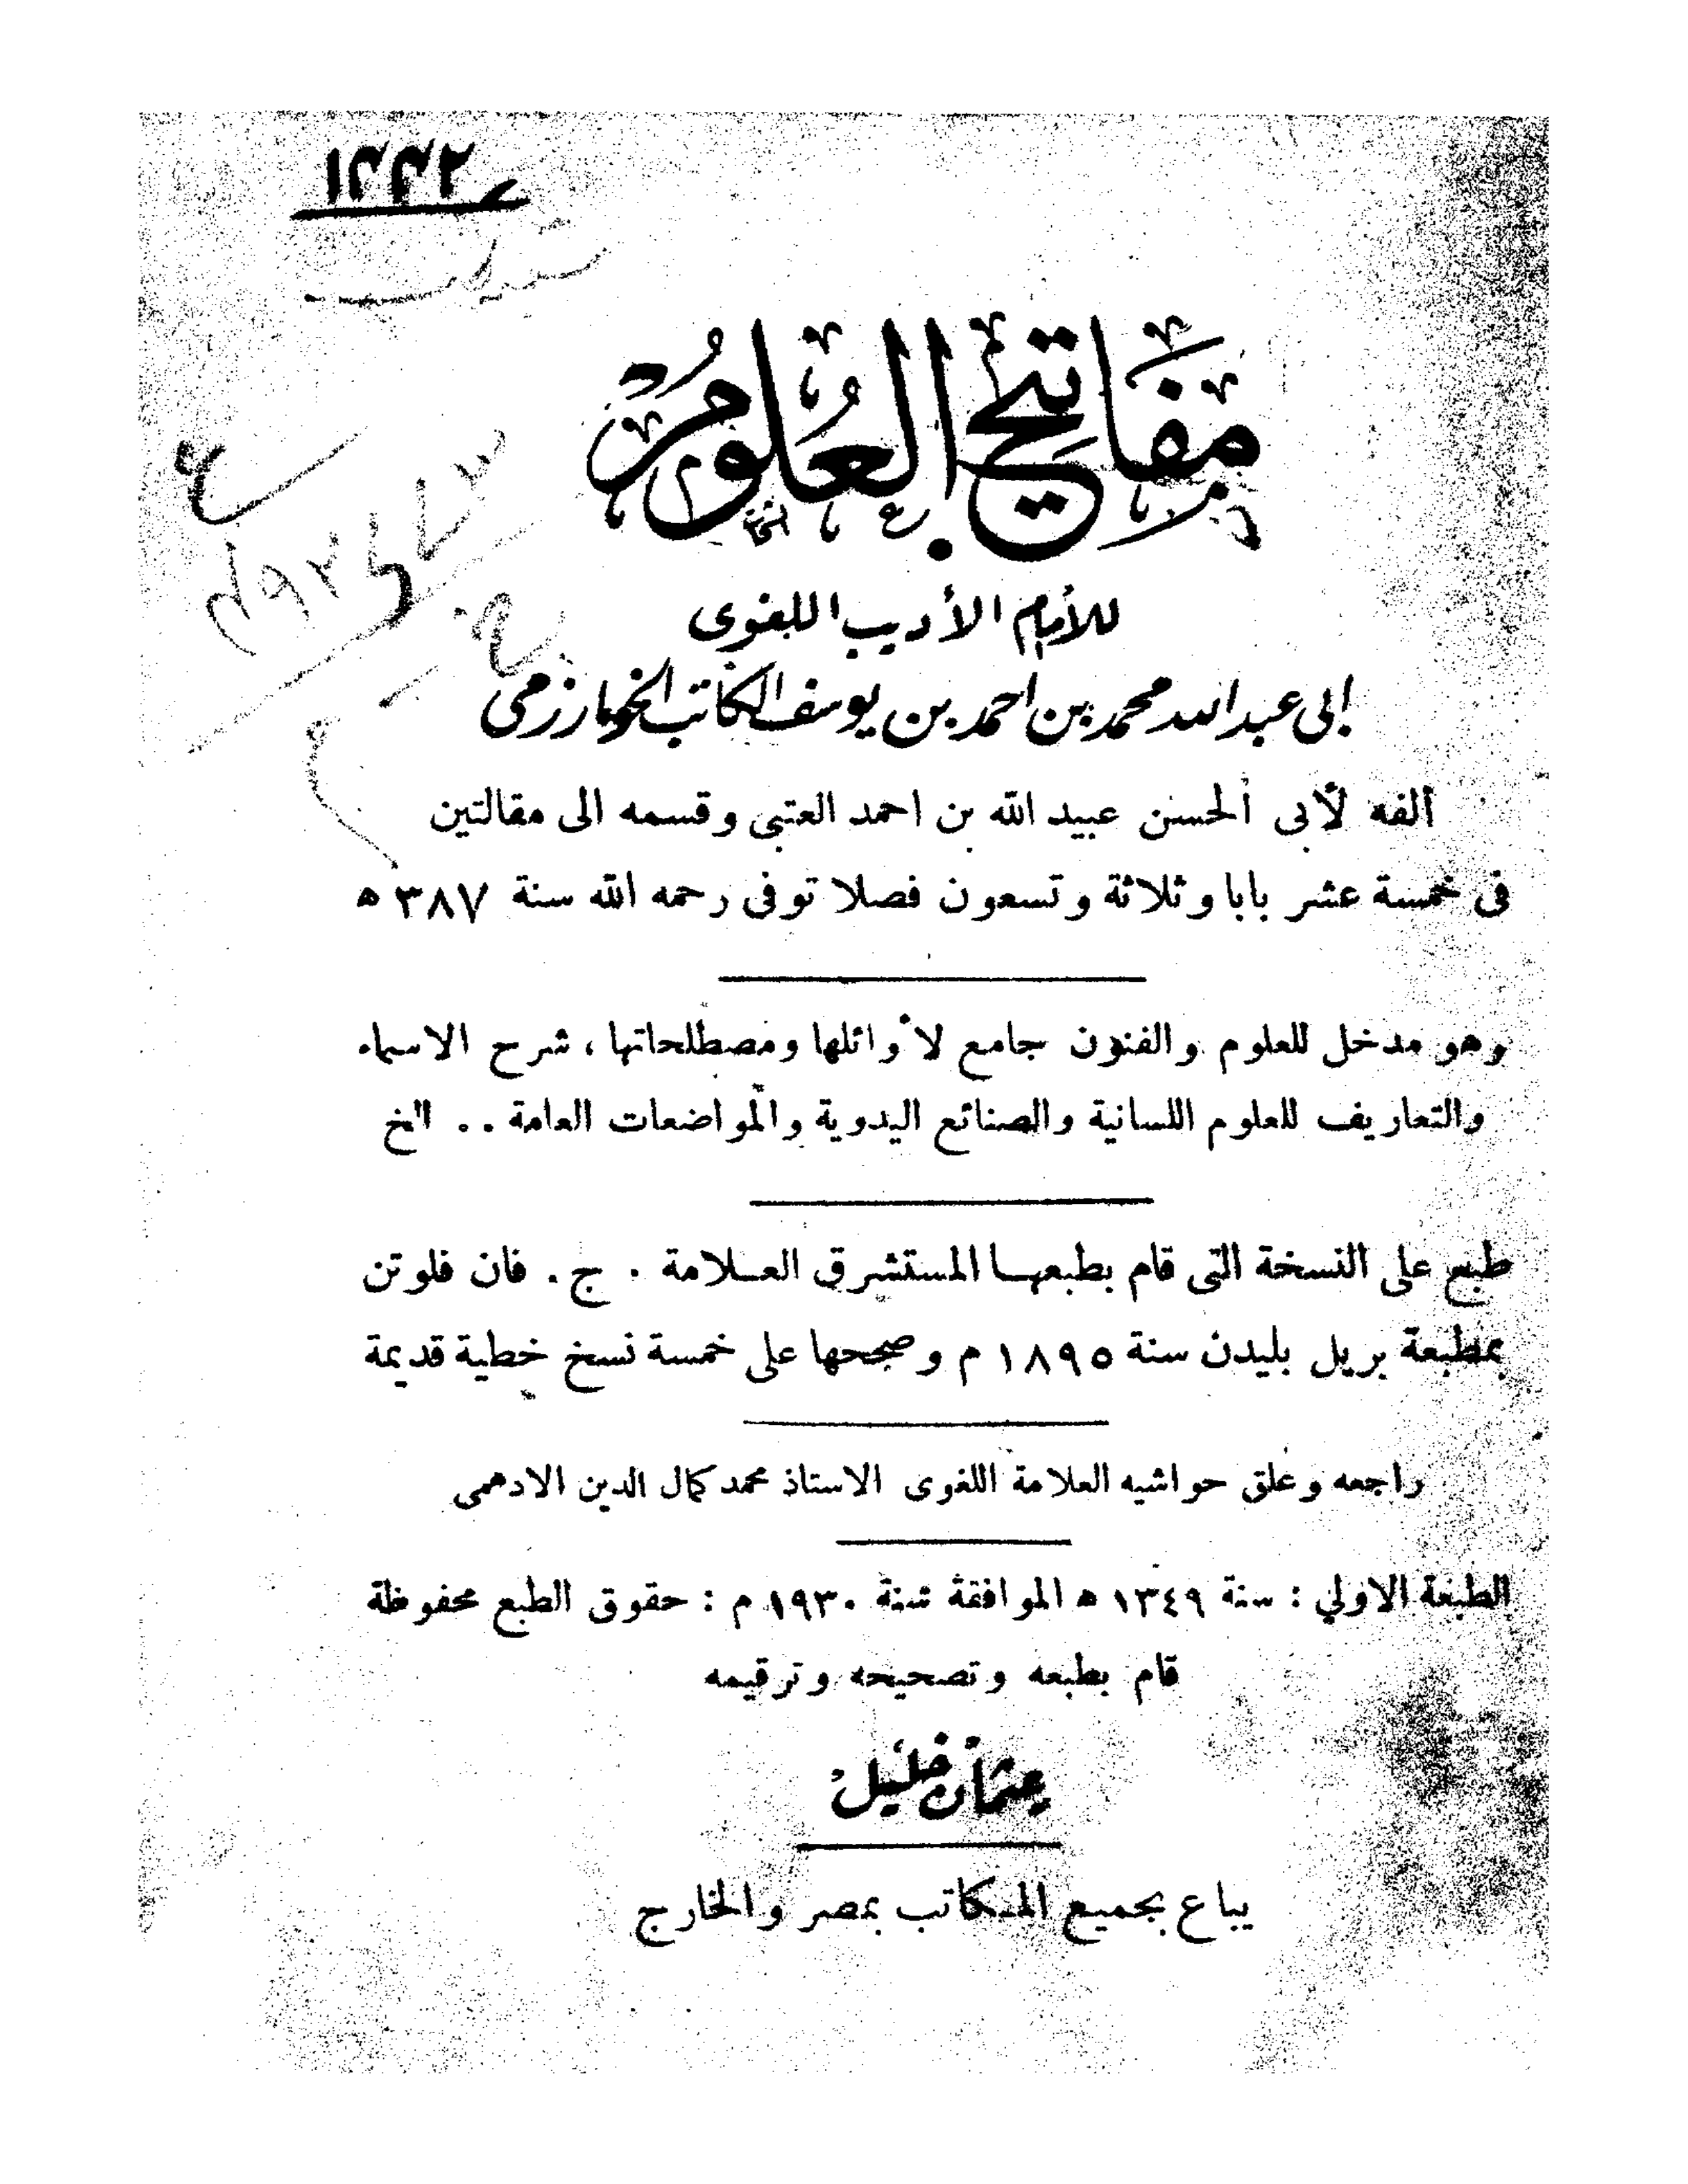 مفاتيح العلوم
للأمام الأديب اللغوى
ابى عبدالله محمد بن احمد بن يوسف الكاتب الخوارزمى
ألفه لأبى ألحسن عبيد الله بن احمد العتبي وقسمه الى مقالتين
فى خمسة عشر بابا وثلاثة وتسعون فصلا توفى رحمه الله سنة ٣٨٧ ه
وهو مدخل للعلوم والفنون جامع لأوائلها ومصطلحاتها ، شرح الاسماء
والتعاريف للعلوم اللسانية والصنائع اليدوية والمواضعات العامة . . الخ
طبع على النسخة التى قام بطبعها المستشرق العلامة . ج . فان فلوتن
بمطبعة بريل بليدن سنة ١٨٩٥ م وصححها على خمسة نسخ خطية قديمة
راجعه وعلق حواشيه العلامة اللغوى الاستاذ محمد كمال الدين الادهمى
الطبعة الاولي : سنة ١٣٤٩ ه الموافقة سنة ١٩٣٠ م : حقوق الطبع محفوظة
قام بطبعه وتصحيحه وترقيمه
عثمان خليل
يباع بجميع المكاتب بمصر والخارج